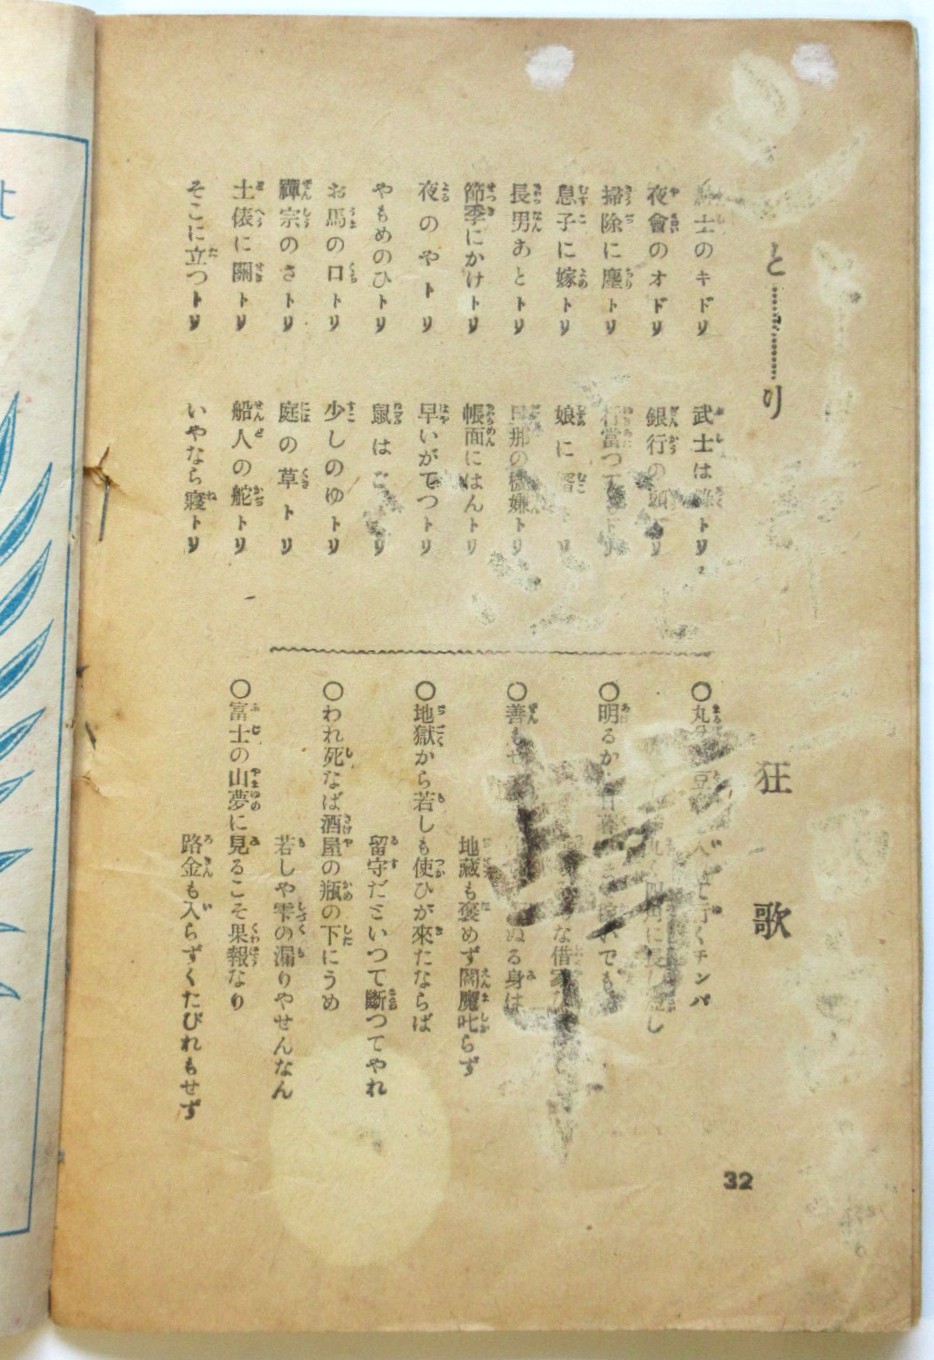 と…………り
士のキドリ
夜會のオドリ
掃除に塵トリ
息子に嫁トリ
長男あとトリ
節季にかけトリ
夜のやトリ
やもめのひトリ
お馬の口トリ
禪宗のさトリ
土俵に關トリ
そこに立つトリ
武士は トリ
銀行の トリ
娘に トリ
の機嫌トリ
帳面にはんトリ
早いがてつトリ
鼠は トリ
少しのゆトリ
庭の草トリ
船人の舵トリ
いやなら寢トリ
狂歌
○丸 て行くチンバ
○明るか でも
な借家
○善も ぬる身は
地藏も褒めず閻魔叱らず
○地獄から若しも使ひが來たならば
留守だといつて斷つてやれ
○われ死なば酒屋の瓶の下にうめ
若しや雫の漏りやせんなん
○富士の山夢に見るこそ果報なり
路金も入らずくたびれもせず
32